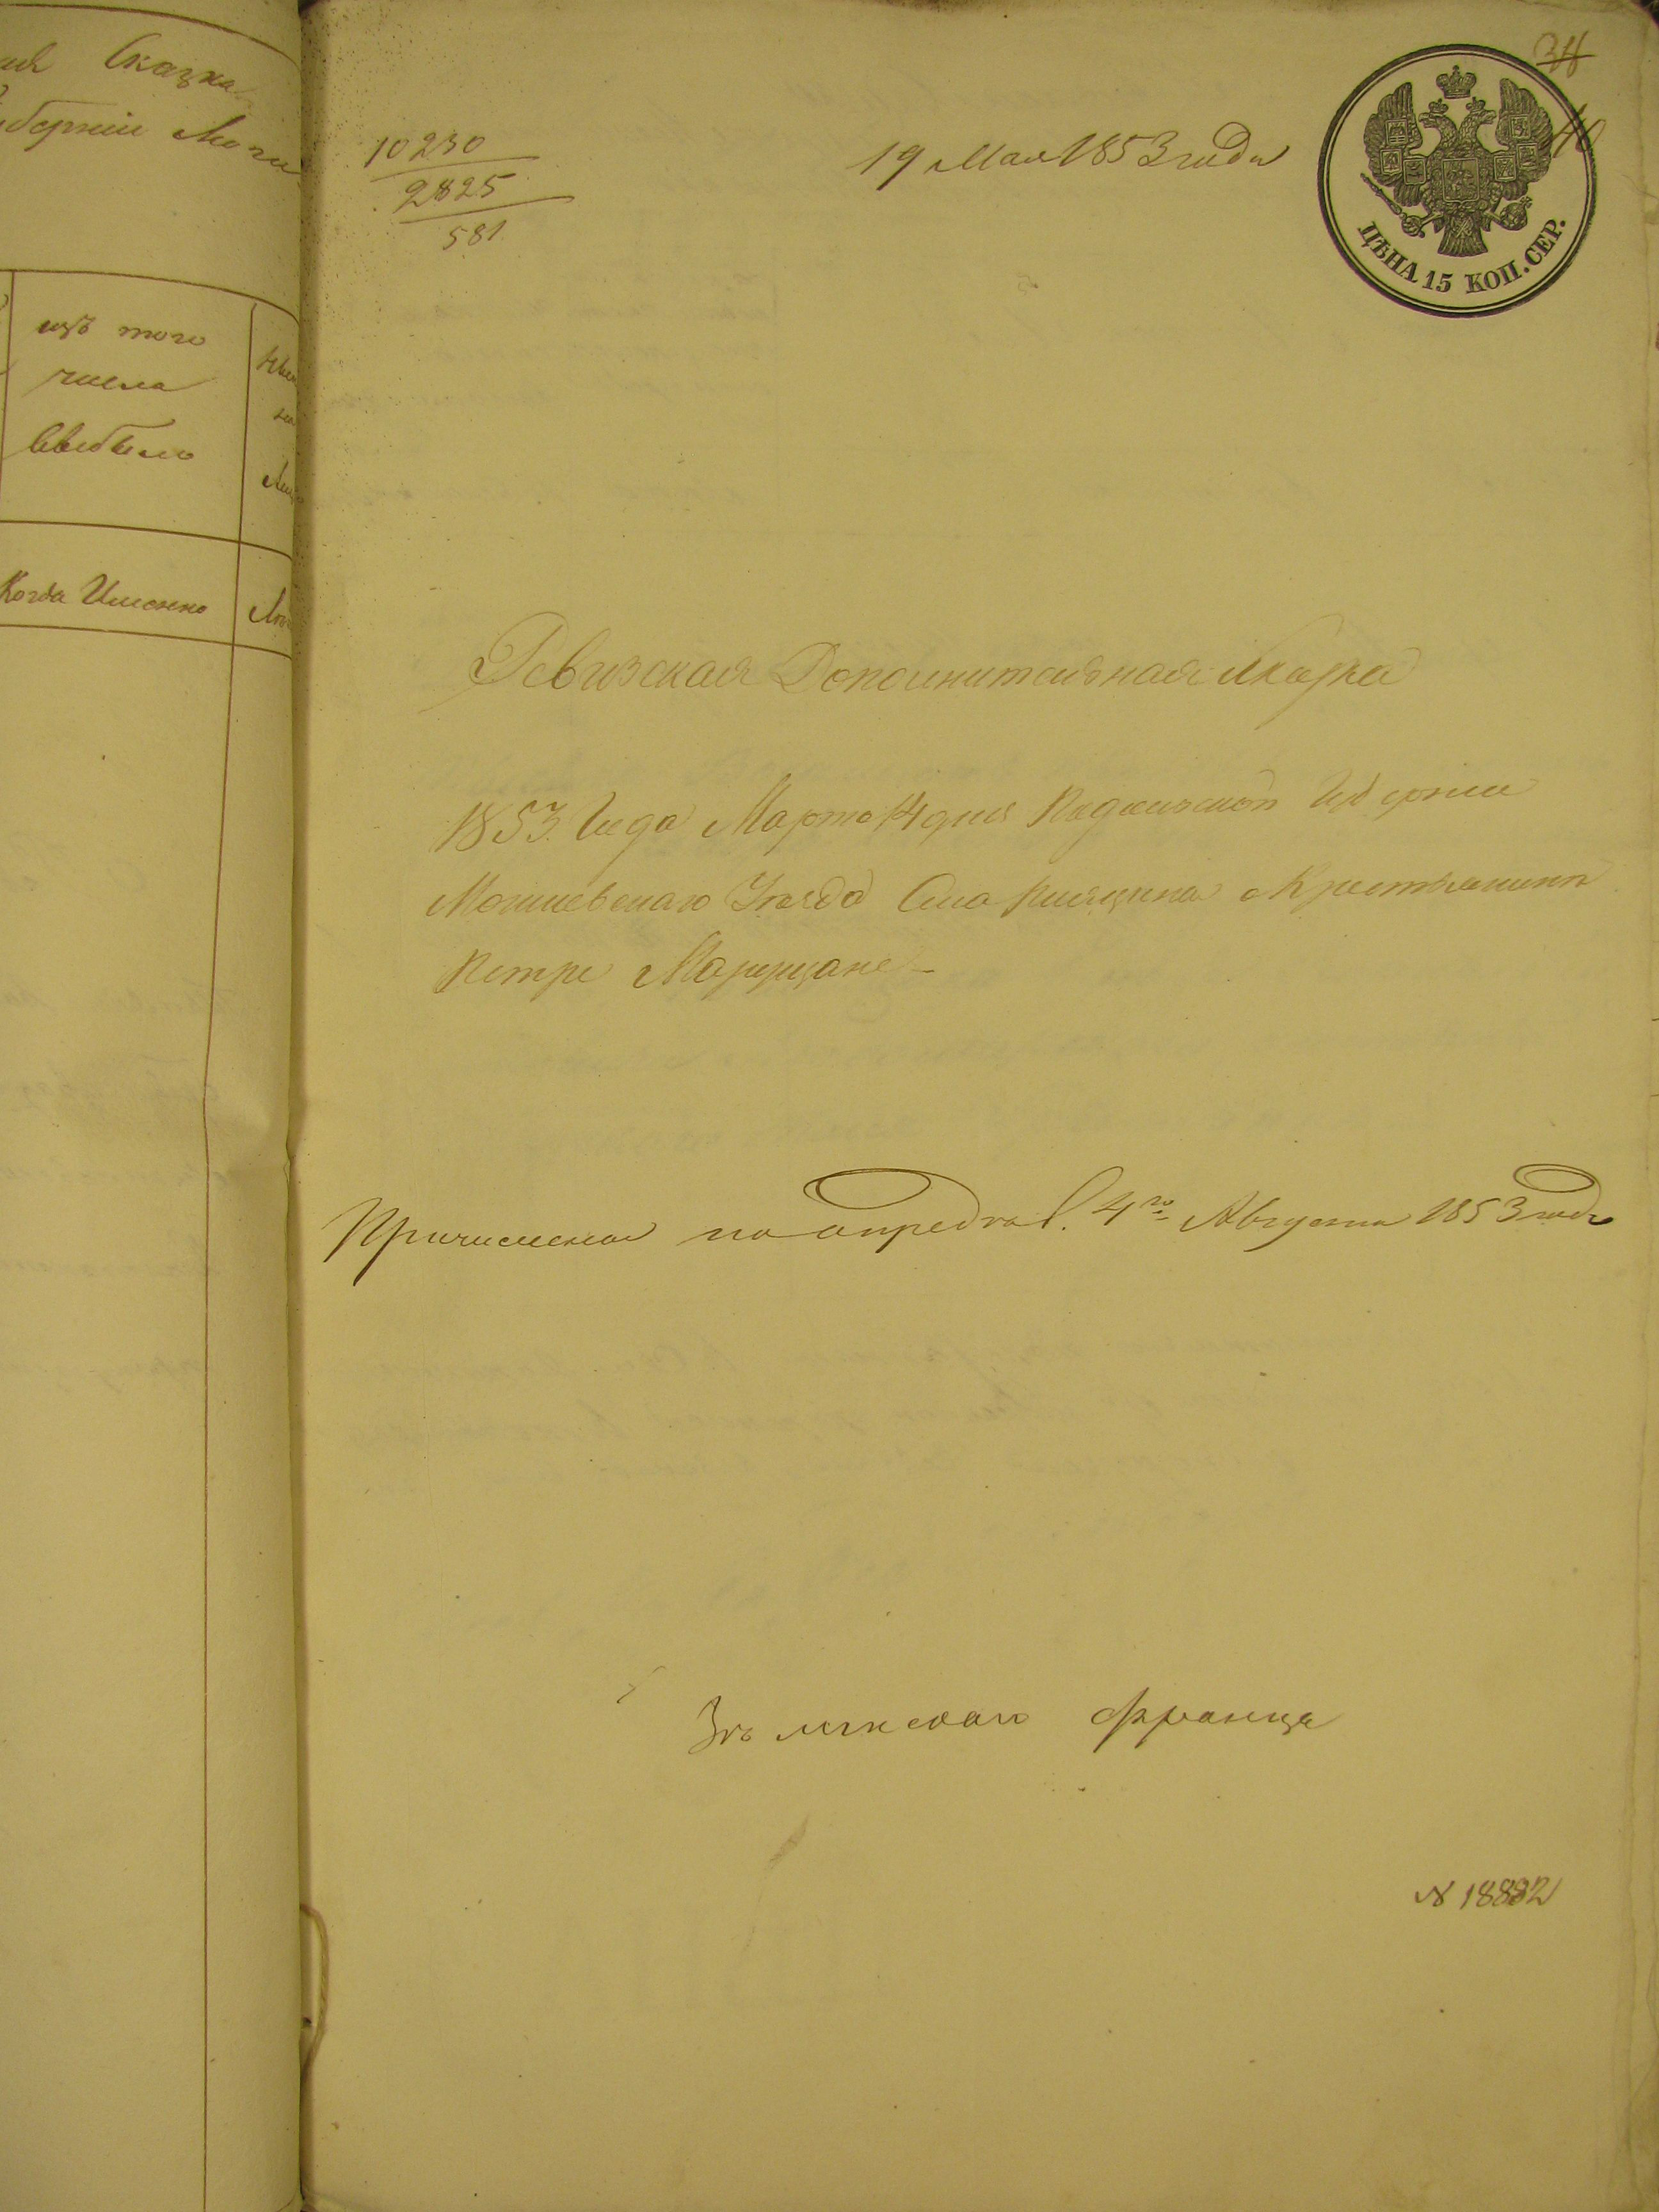 Сказка
губернiи Моги
изъ того
числа
выбыло
Когда Именно
34
40
10230
2825
581
19 Мая 1853 года
ЦѢНА 15 КОП. СЕР.
Ревизская Дополнительная сказка
1853. Года Марта 14 дня Подольской Губернiи
Могилевскаго Уѣзда Села
Петре
Причислена по опредѣл. 4го Августа 1853 года
Франца
№ 18882